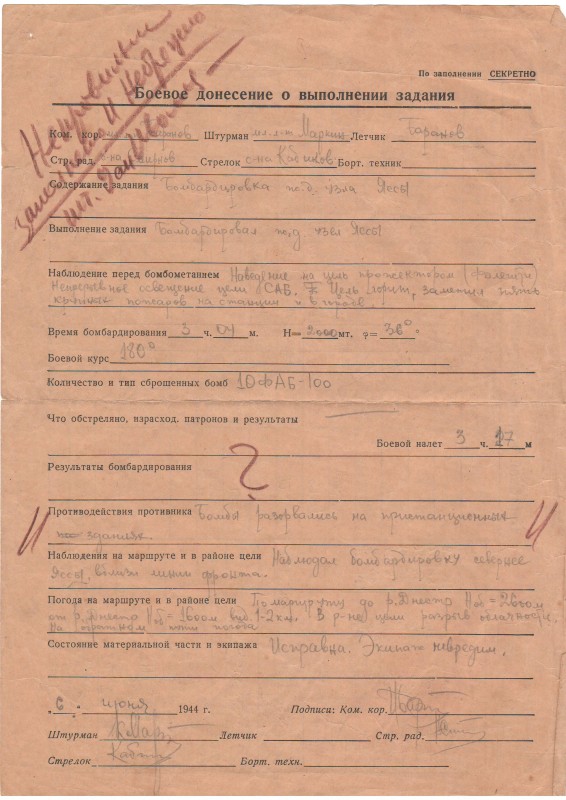 По заполнении СЕКРЕТНО
Неправильно
и Небрежно
Боевое донесение о выполнении задания
Ком. кор. Баранов Штурман мл. л-т Маркин Летчик Баранов
Стр. рад. с-на Стрелок с-на Кабиков Борт. техник
Содержание задания Бомбардировка ж.д. узла Яссы
Выполнение задания Бомбардировал ж.д узел Яссы
Наблюдение перед бомбометанием Наведение на цель прожектором (Фалешти)
Непрерывное освещение цели САБ. Цель горит, заметил пять
крупных пожаров на станции и в городе
Время бомбардирования 3 ч. 04 м. Н= 2000 мт. φ= 36° =
Боевой курс 180°
Количество и тип сброшенных бомб 10 ФАБ-100
Что обстреляно, израсход. патронов и результаты
Боевой налет 3 ч. 17 м
Результаты бомбардирования ?
Противодействия противника Бомбы разорвались на пристанционных
зданиях.
Наблюдения на маршруте и в районе цели Наблюдал бомбардировку севернее
Яссы, вблизи линии фронта.
Погода на маршруте и в районе цели По маршруту до р.Днестр Ноб=2600м
от р.Днестр Ноб=1600м вид. 1-2км. В р-не цели разрыв облачности.
На обратном пути погода
Состояние материальной части и экипажа Исправна. Экипаж невредим.
6 июня 1944 г. Подписи: Ком. кор.
Штурман Летчик Стр. рад.
Стрелок Борт. техн.